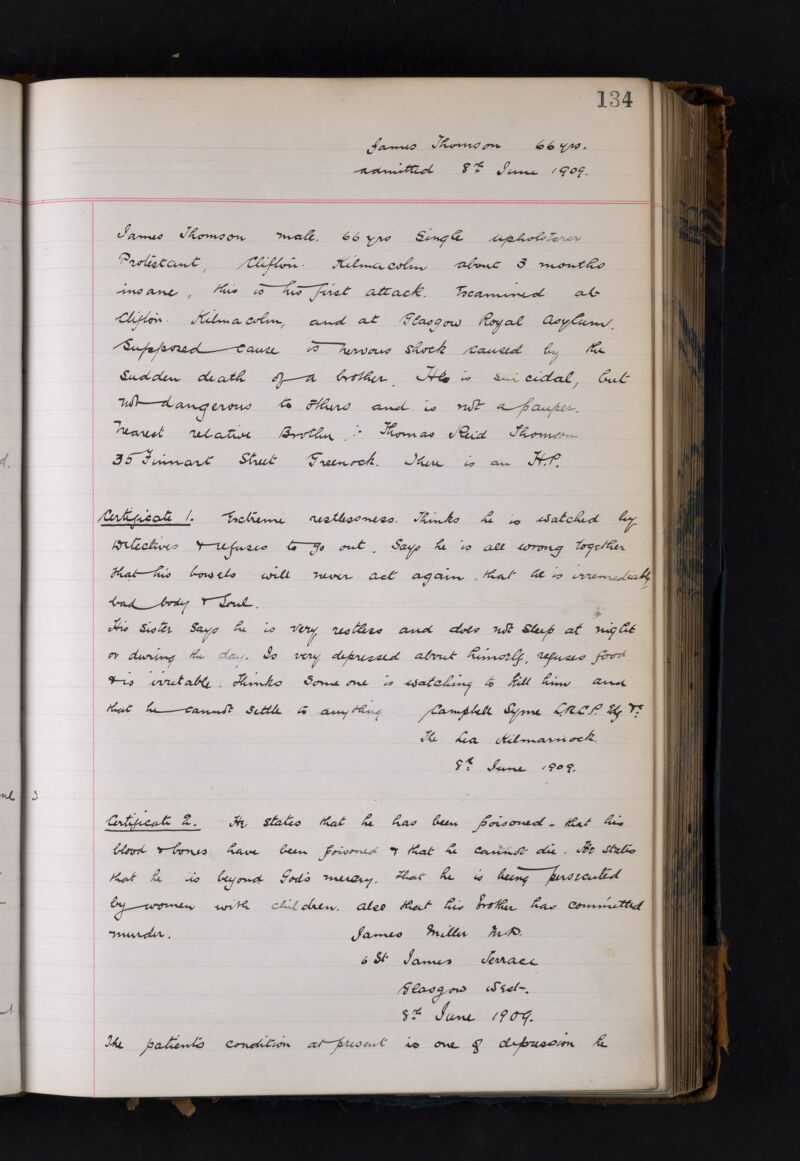 134
James Thomson 66 yrs.
admitted 8th June 1909.
James Thomson male. 66 yrs Single upholsterer
Protestant, Clifton. Kilmacolm about 3 months
insane, this is his first attack. Examined at
Clifton. Kilmacolm, and at Glasgow Royal Asylum.
Supposed cause is nervous shock caused by the
sudden death of a brother. He is suicidal, but
not dangerous to others and is not a pauper.
Nearest relative Brother :- Thomas Reid Thomson
35 Finnart Street Greenock. There is an H.P.
Certificate 1. Extreme restlessness. Thinks he is watched by
Detectives & refuses to go out. Says he is all wrong together
that his bowels will never act again. that he is irremediably
bad body & Soul.
His sister says he is very restless and does not sleep at night
or during the day. Is very depressed about himself, refuses food
& is irritable. thinks some one is watching to kill him and
that he cannot settle to anything Campbell Syme L.R.C.P.
The Lea Kilmarnock.
8th June 1909.
Certificate 2. He states that he has been poisoned - that his
blood & bones have been poisoned & that he cannot die. He states
that he is beyond God's mercy. that he is being persecuted
by women with children. also that his brother has committed
murder. James Miller M.D.
6 St James Terrace
Glasgow West.
8th June 1909.
The patients condition at present is one of depression he